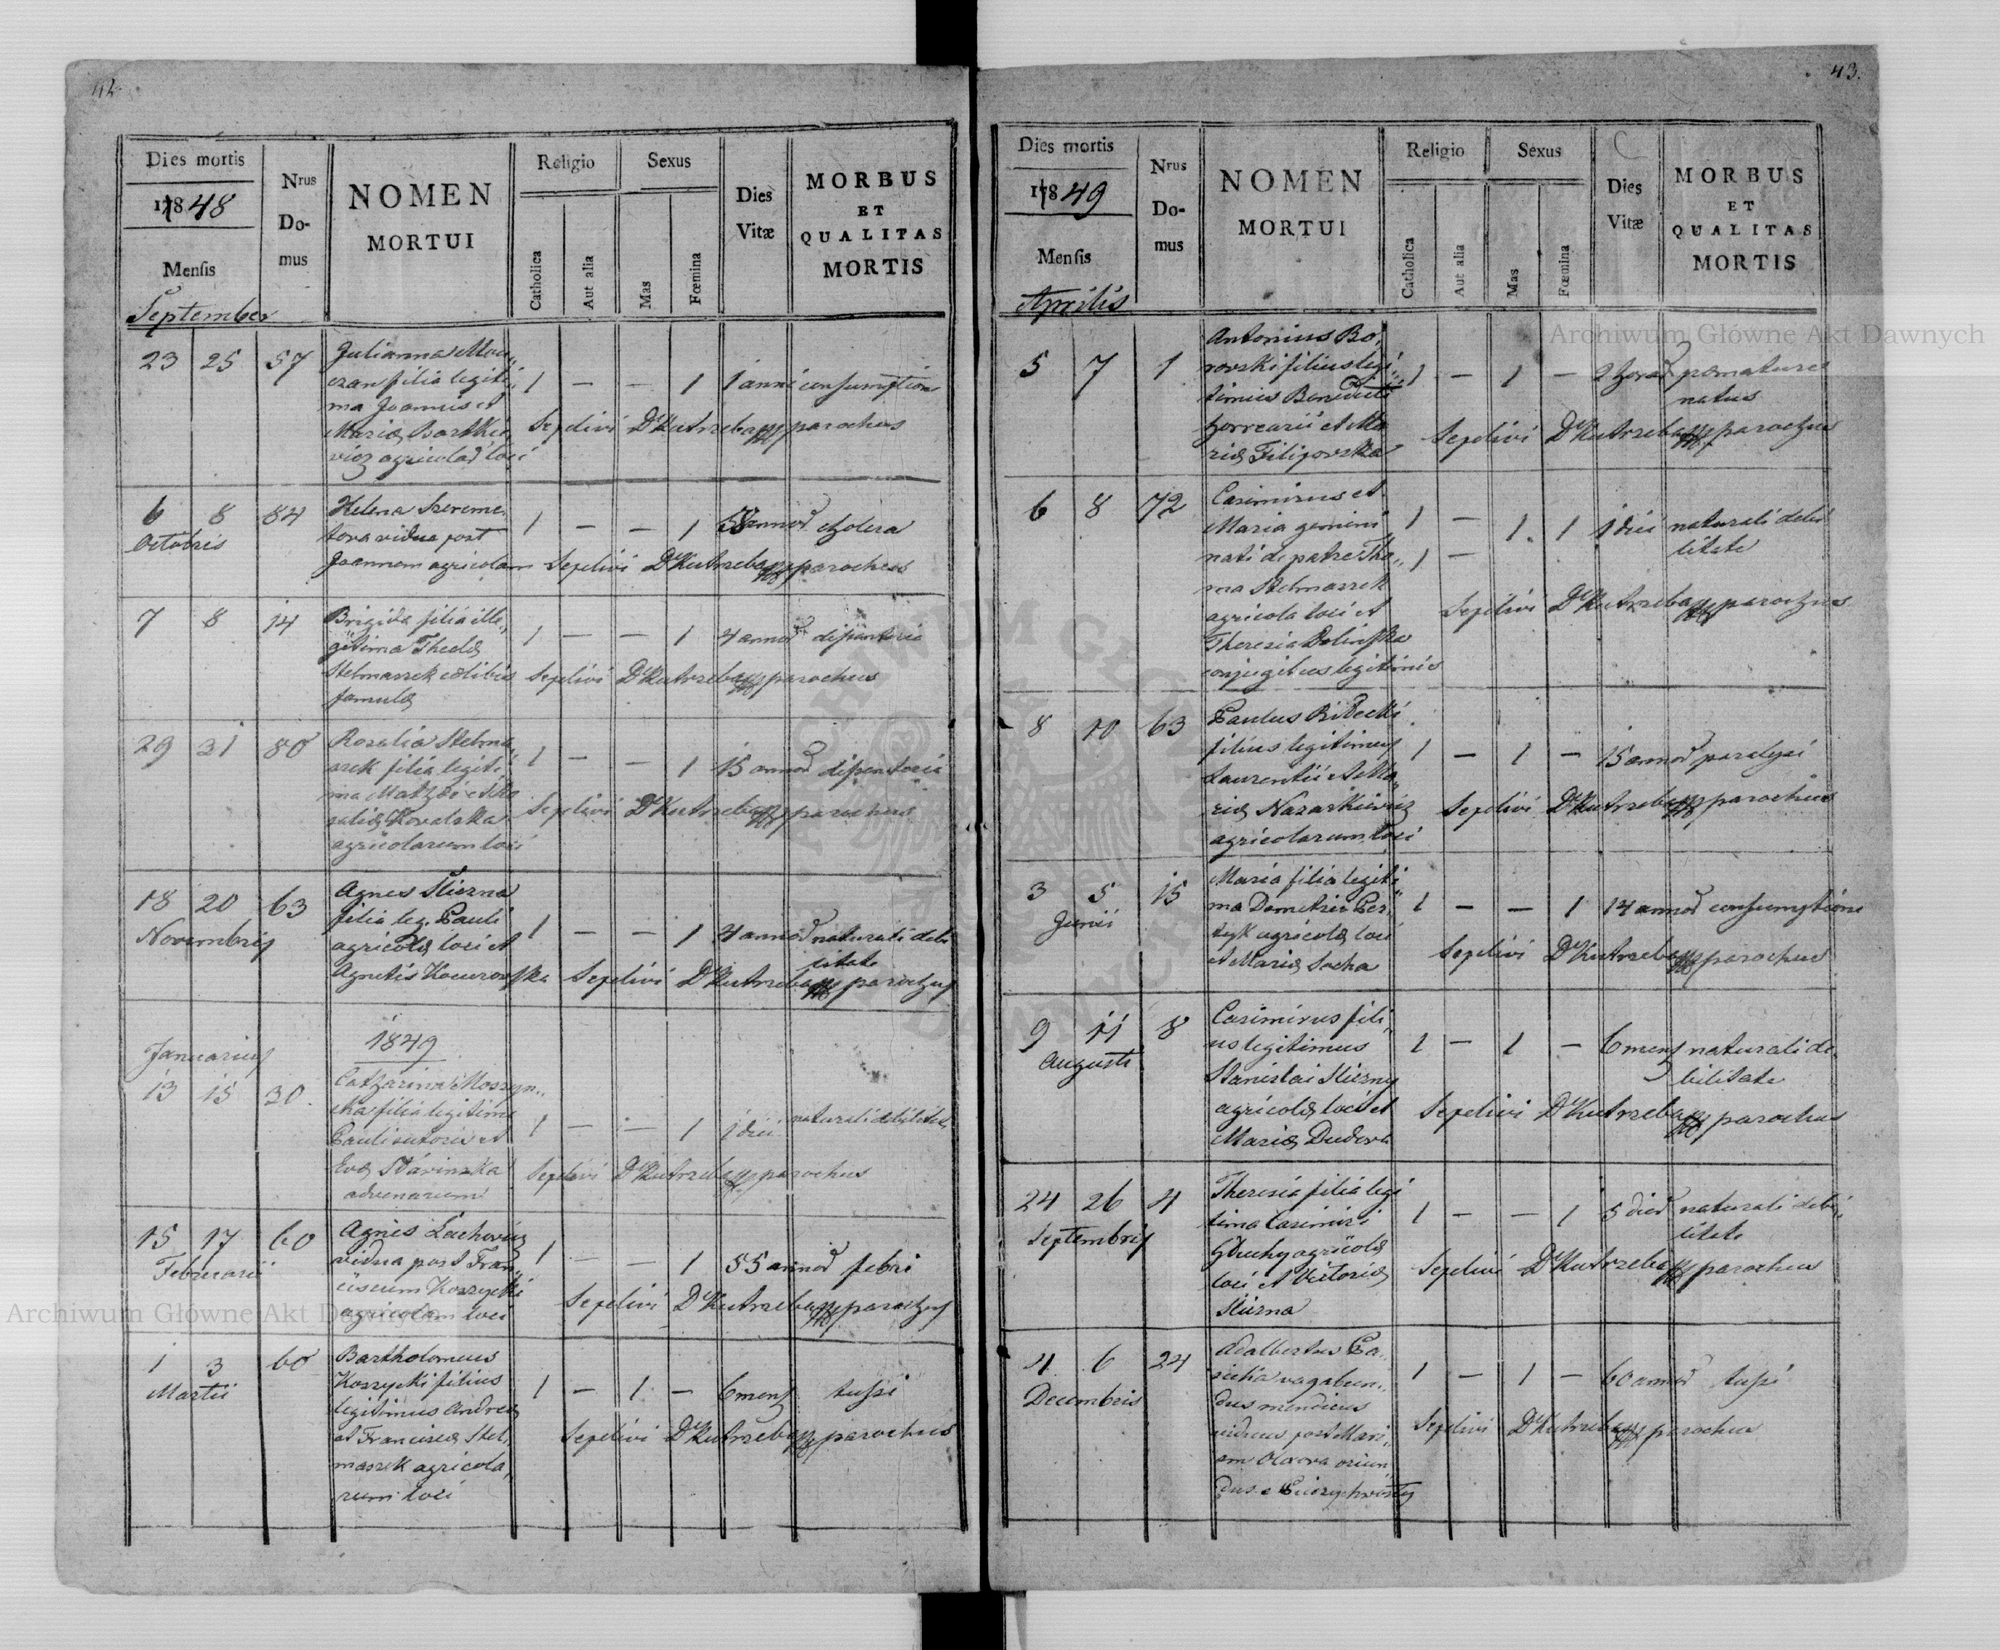 42
Dies mortis
1848
Mensis
September
Nrus Domus
NOMEN
MORTUI
Religio
Catholica
Aut alia
Sexus
Mas
Fœmina
Dies Vitæ
MORBUS
ET
QUALITAS
MORTIS
23 25 57
Julianna
filia legiti„
ma Joannis et
Mariæ
agricolar loci
1 — — 1 1 anni consumption
Sepelivi Dt Kutrzeba parochus
6 8 84
Octobris
Helena Szereme„
tova vidua post
Joannem agricolam
1 — — 1 annor cholera
Sepelivi Dt Kutrzeba parochus
7 8 14
Brigida filia ille„
gitima Theclæ
Stelmaszek cœlibis
famulæ
1 — — 1 4 annor
Sepelivi Dt Kutrzeba parochus
29 31 80
Rosalia Stelma„
szek filia legiti„
ma
Kovalska
agricolarum loci
1 — — 1 15 annor
Sepelivi Dt Kutrzeba parochus
18 20 63
Novembris
Agnes Slizna
filia leg. Pauli
agricolæ loci et
Agnetis
1 — — 1 4 annor naturali debi
litate
Sepelivi Dt Kutrzeba parochus
1849
Januarius
13 15 30
Catharina Moszyn„
ska filia legitima
Pauli sutoris et
Evæ
advenarum
1 — — 1 1 diei naturali debilitate
Sepelivi Dt Kutrzeba parochus
15 17 60
Februarii
Agnes Lachovicz
vidua post Fran„
ciscum Koszycki
agricolam loci
1 — — 1 55 annor febri
Sepelivi Dt Kutrzeba parochus
1 3 60
Martii
Bartholomeus
Koszycki filius
legitimus Andreæ
et Franciscæ Stel„
maszek agricola„
rum loci
1 — 1 — 6 mens tussi
Sepelivi Dt Kutrzeba parochus
43.
Dies mortis
1849
Mensis
Aprilis
Nrus Domus
NOMEN
MORTUI
Religio
Catholica
Aut alia
Sexus
Mas
Fœmina
Dies Vitæ
MORBUS
ET
QUALITAS
MORTIS
5 7 1
Antonius Bo„
rovski filius legi„
timus Benedicti
horrearii et Ma
riæ Filipovska
1 — 1 — 2 horar præmature
natus
Sepelivi Dt Kutrzeba parochus
6 8 72
Casimirus et
Maria gemini
nati de patre Tho„
ma Stelmaszek
agricola loci et
Theresia Dolinska
conjugibus legitimis
1 — 1 1 1 diei naturali debi
1 — litate
Sepelivi Dt Kutrzeba parochus
8 10 63
Paulus
filius legitimus
Laurentii et Ma„
riæ Nazarkievicz
agricolarum loci
1 — 1 — 15 annor paralysi
Sepelivi Dt Kutrzeba parochus
3 5 15
Junii
Maria filia legiti„
ma Demetrii
agricolæ loci
et Mariæ Socha
1 — — 1 14 annor consumptione
Sepelivi Dt Kutrzeba parochus
9 11 8
Augusti
Casimirus fili„
us legitimus
Stanislai Slizny
agricolæ loci et
Mariæ Dudova
1 — 1 — 6 mens naturali de„
bilitate
Sepelivi Dt Kutrzeba parochus
24 26 4
Septembris
Theresia filia legi
tima Casimiri
Głuchy agricolæ
loci et Victoriæ
Slizna
1 — — 1 5 dier naturali debi„
litate
Sepelivi Dt Kutrzeba parochus
4 6 24
Decembris
Adalbertus
vagabun„
dus mendicus
viduus post Mari„
am oriun„
dus e
1 — 1 — 60 annor tussi
Sepelivi Dt Kutrzeba parochus
Archiwum Główne Akt Dawnych
Archiwum Główne Akt Dawnych